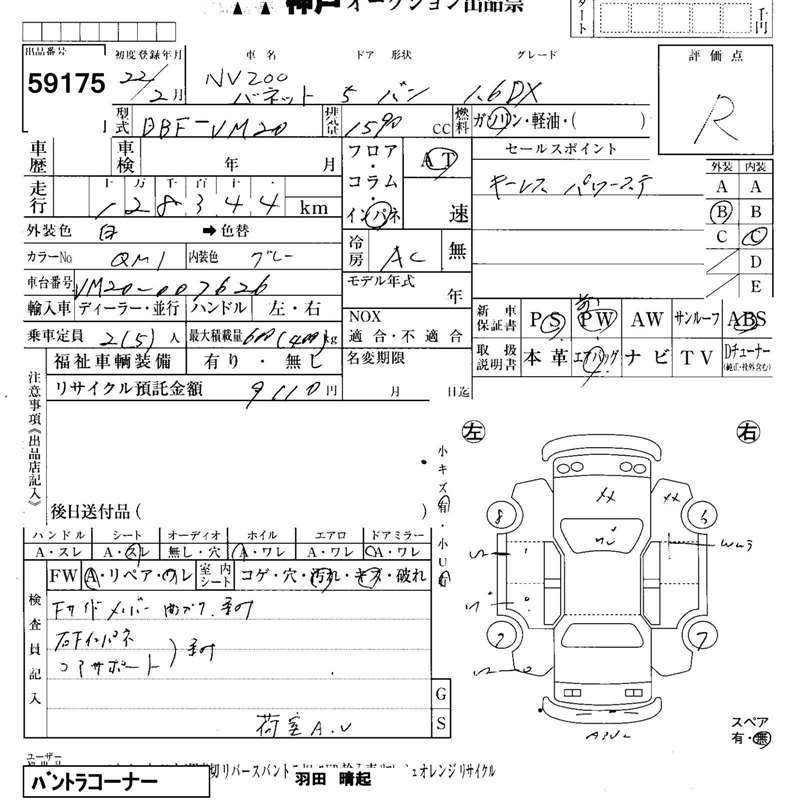 神戸オークション出品票
スタート 千円
出品番号 59175
初度登録年月 22/2月
車名 NV200 バネット
ドア 形状 5 バン
グレード 1.6DX
評価点 R
型式 DBF-VM20
排気量 1590 CC
燃料 ガソリン・軽油・( )
車歴
車検 年 月
フロア・コラム・インパネ
AT
速
セールスポイント
キーレス パワーステ
外装 内装
A A
B B
C C
D
E
走行 十万千百十一
128344 km
外装色 白 → 色替
カラーNo QM1
内装色 グレー
冷房 AC 無
車台番号 VM20-007626
モデル年式 年
輸入車 ディーラー・並行 ハンドル 左・右
NOX 適合・不適合
新車保証書 PS PW AW サンルーフ ABS
乗車定員 2(5)人
最大積載量 600(400)kg
取扱説明書 本革 エアバッグ ナビ TV Dチューナー (純正・社外含む)
福祉車輌装備 有り・無し
名変期限 月 日迄
リサイクル預託金額 9110円
注意事項《出品店記入》
後日送付品( )
小キズ有・小U有
左 右
ハンドル シート オーディオ ホイル エアロ ドアミラー
A・スレ A・スレ 無し・穴 A・ワレ A・ワレ A・ワレ
FW A・リペア・ワレ 室内シート コゲ・穴・汚れ・キズ・破れ
検査員記入
Fサイドメンバー 曲がり
右Fインパネ
コアサポート
荷室A.U
G
S
スペア 有・無
ユーザー
バントラコーナー
羽田 晴起
オレンジリサイクル